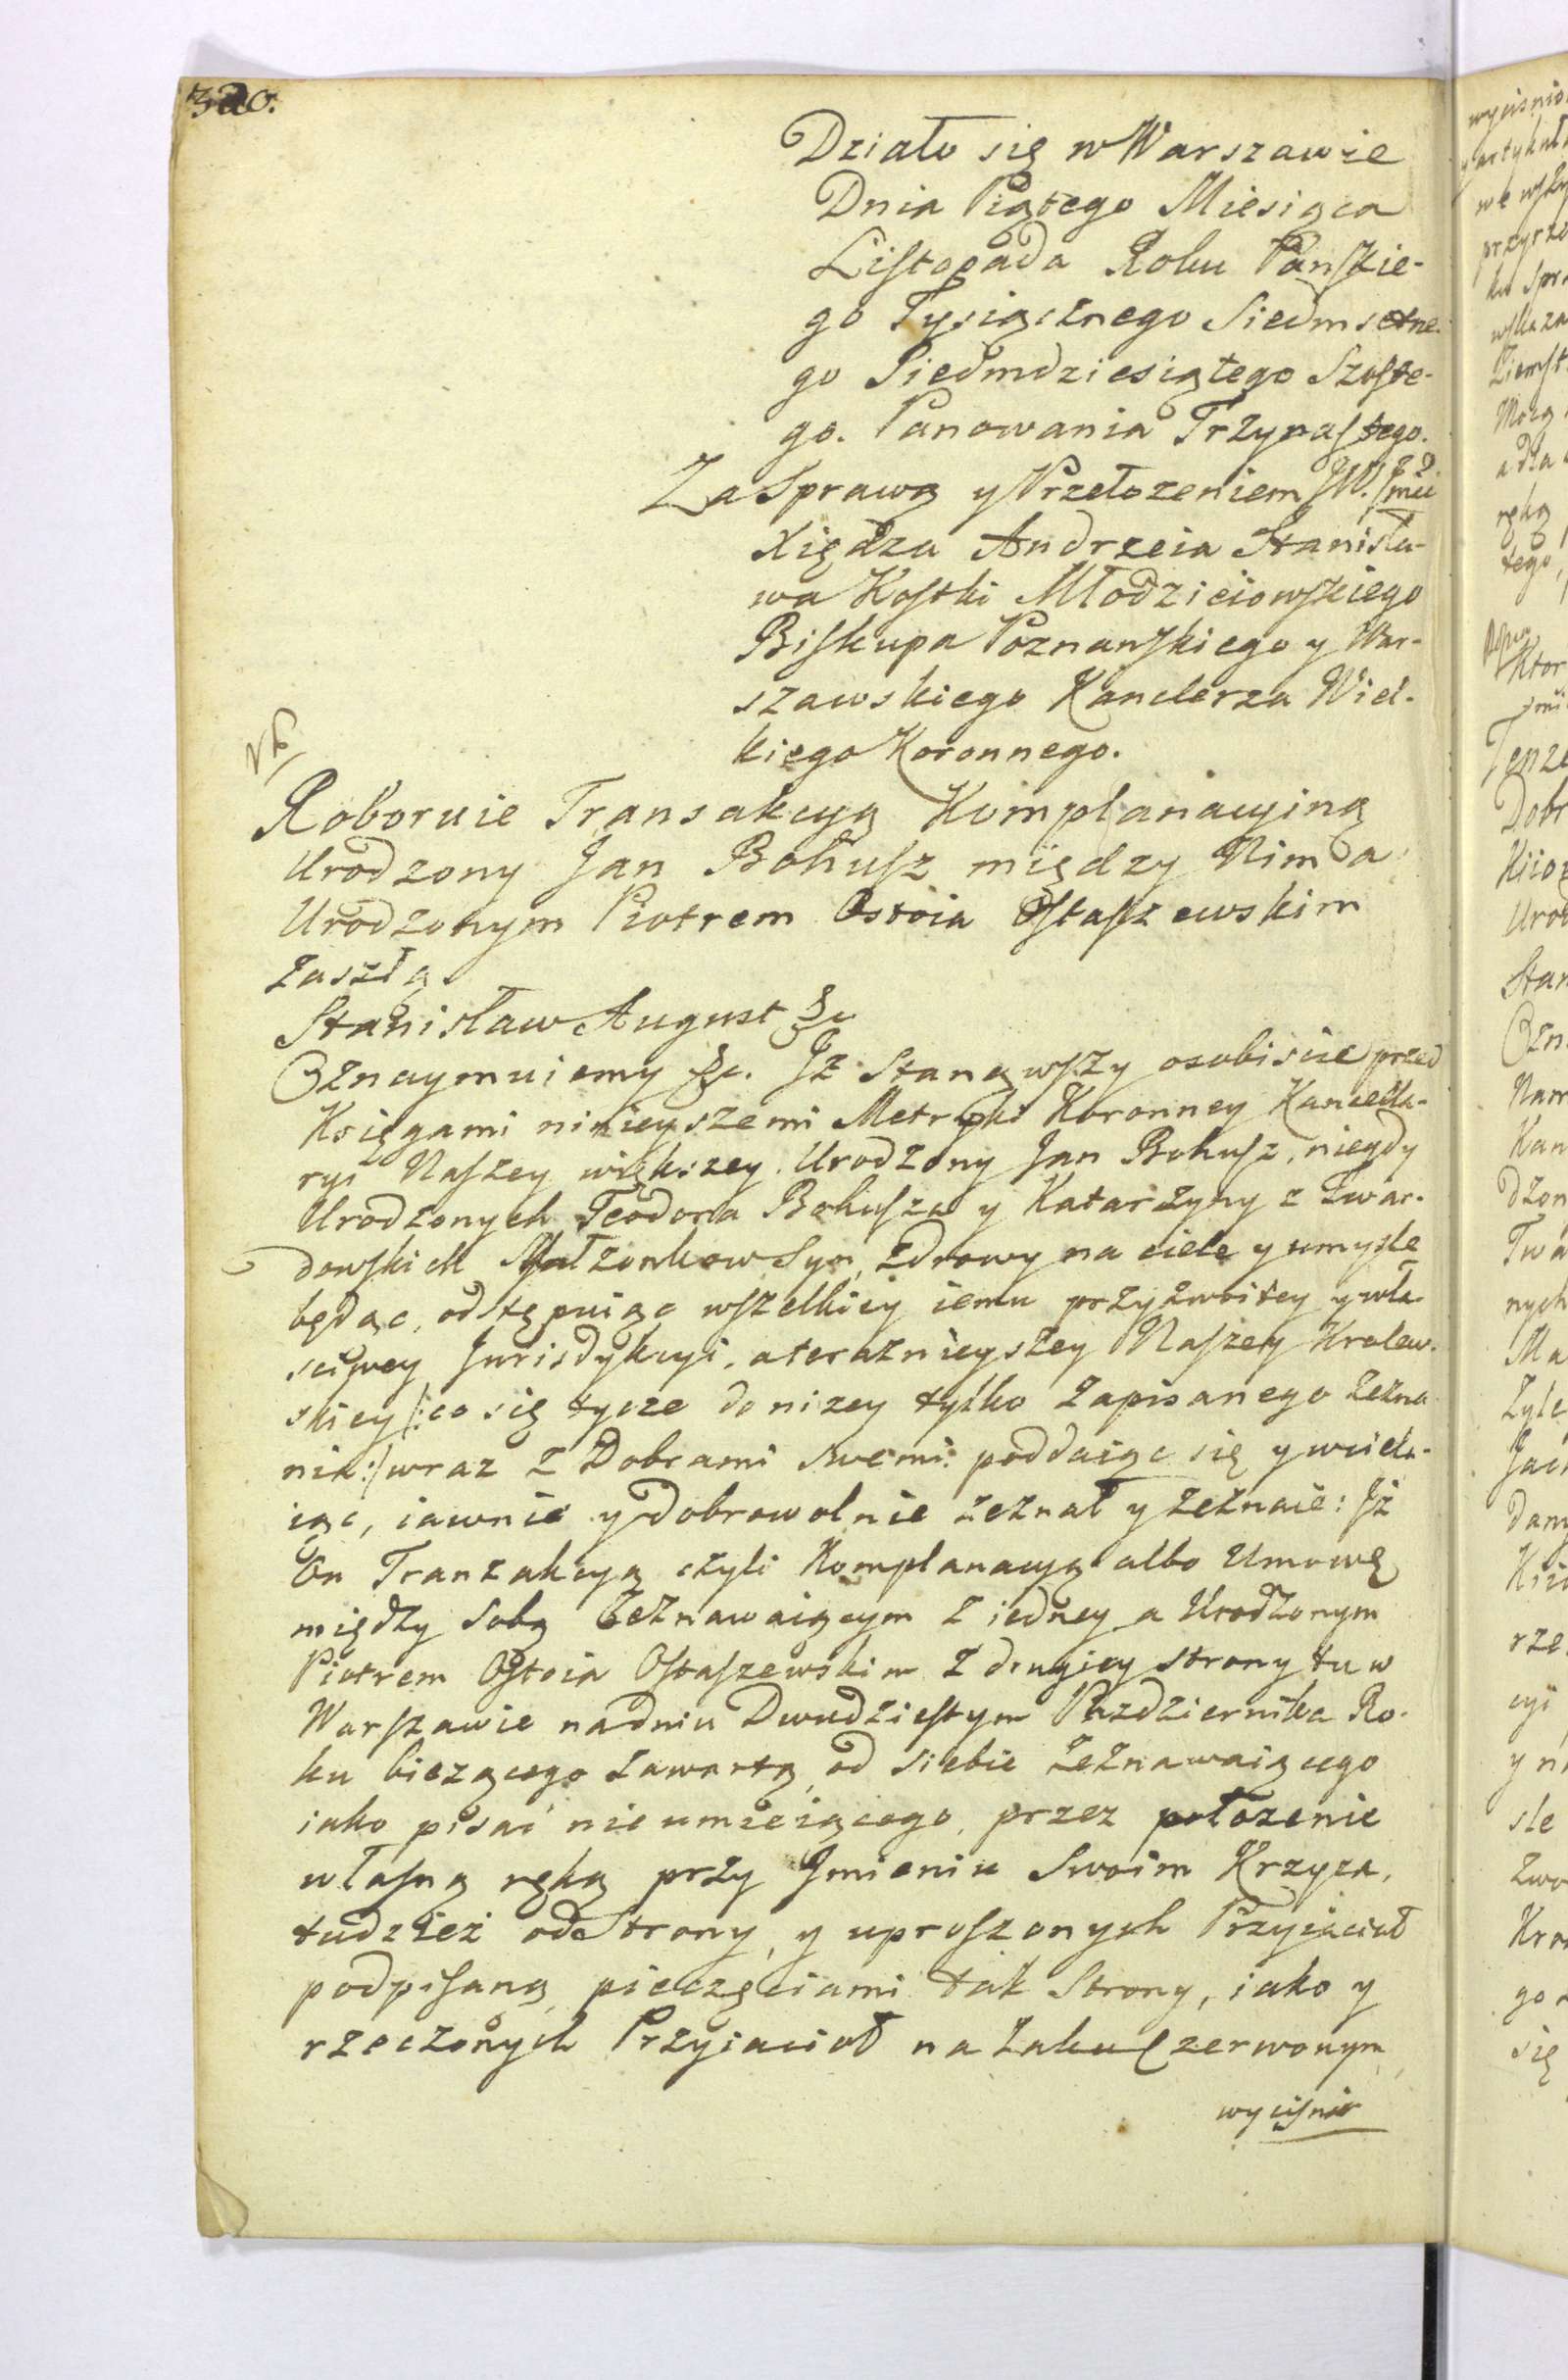 320.
Działo się w Warszawie
Dnia Piątego Miesiąca
Listopada Roku Pańskie-
go Tysiącznego Siedmsetne-
go Siedmdziesiątego Szoste-
go. Panowania Trzynastego.
Za Sprawą y Przełozeniem JW. Jmci
Xiędza Andrzeia Stanisła-
wa Kostki Młodzieiowskiego
Biskupa Poznanskiego y War-
szawskiego Kanclerza Wiel-
kiego Koronnego.
Roboruie Transakcyą Komplanacyiną
Urodzony Jan Bohusz między Nim a
Urodzonym Piotrem Ostoia Ostaszewskim
zaszłą.
Stanisław August &c
Oznaymuiemy &c. Jż Stanąwszy osobiscie przed
Księgami ninieyszemi Metryki Koronney Kancella-
ryi Naszey większey. Urodzony Jan Bohusz, niegdy
Urodzonych Teodora Bohusza y Katarzyny z Twar-
dowskich Małzonkow Syn, zdrowy na ciele y umysle
będąc, odstępuiąc wszelkiey iemu przyzwoitey y wła-
sciwey Jurisdykcyi, a teraznieyszey Naszey Krolew-
skiey /: co się tycze do nizey tylko zapisanego zezna-
nia :/ wraz z Dobrami swemi poddaiąc się y wciela-
iąc, iawnie y dobrowolnie zeznał y zeznaie: Jż
On Tranzakcyą czyli Komplanacyą albo Umowę
między Sobą Zeznawaiącym z iedney a Urodzonym
Piotrem Ostoia Ostaszewskim z drugiey strony tu w
Warszawie na dniu Dwudziestym Pazdziernika Ro-
ku biezącego zawartą, od siebie Zeznawaiącego
iako pisać nieumieiącego, przez połozenie
własną ręką przy Jmieniu Swoim Krzyza,
tudzież od Strony, y uproszonych Przyiacioł
podpisaną, pieczęciami tak Strony, iako y
rzeczonych Przyiacioł na Laku Czerwonym
wycisnio